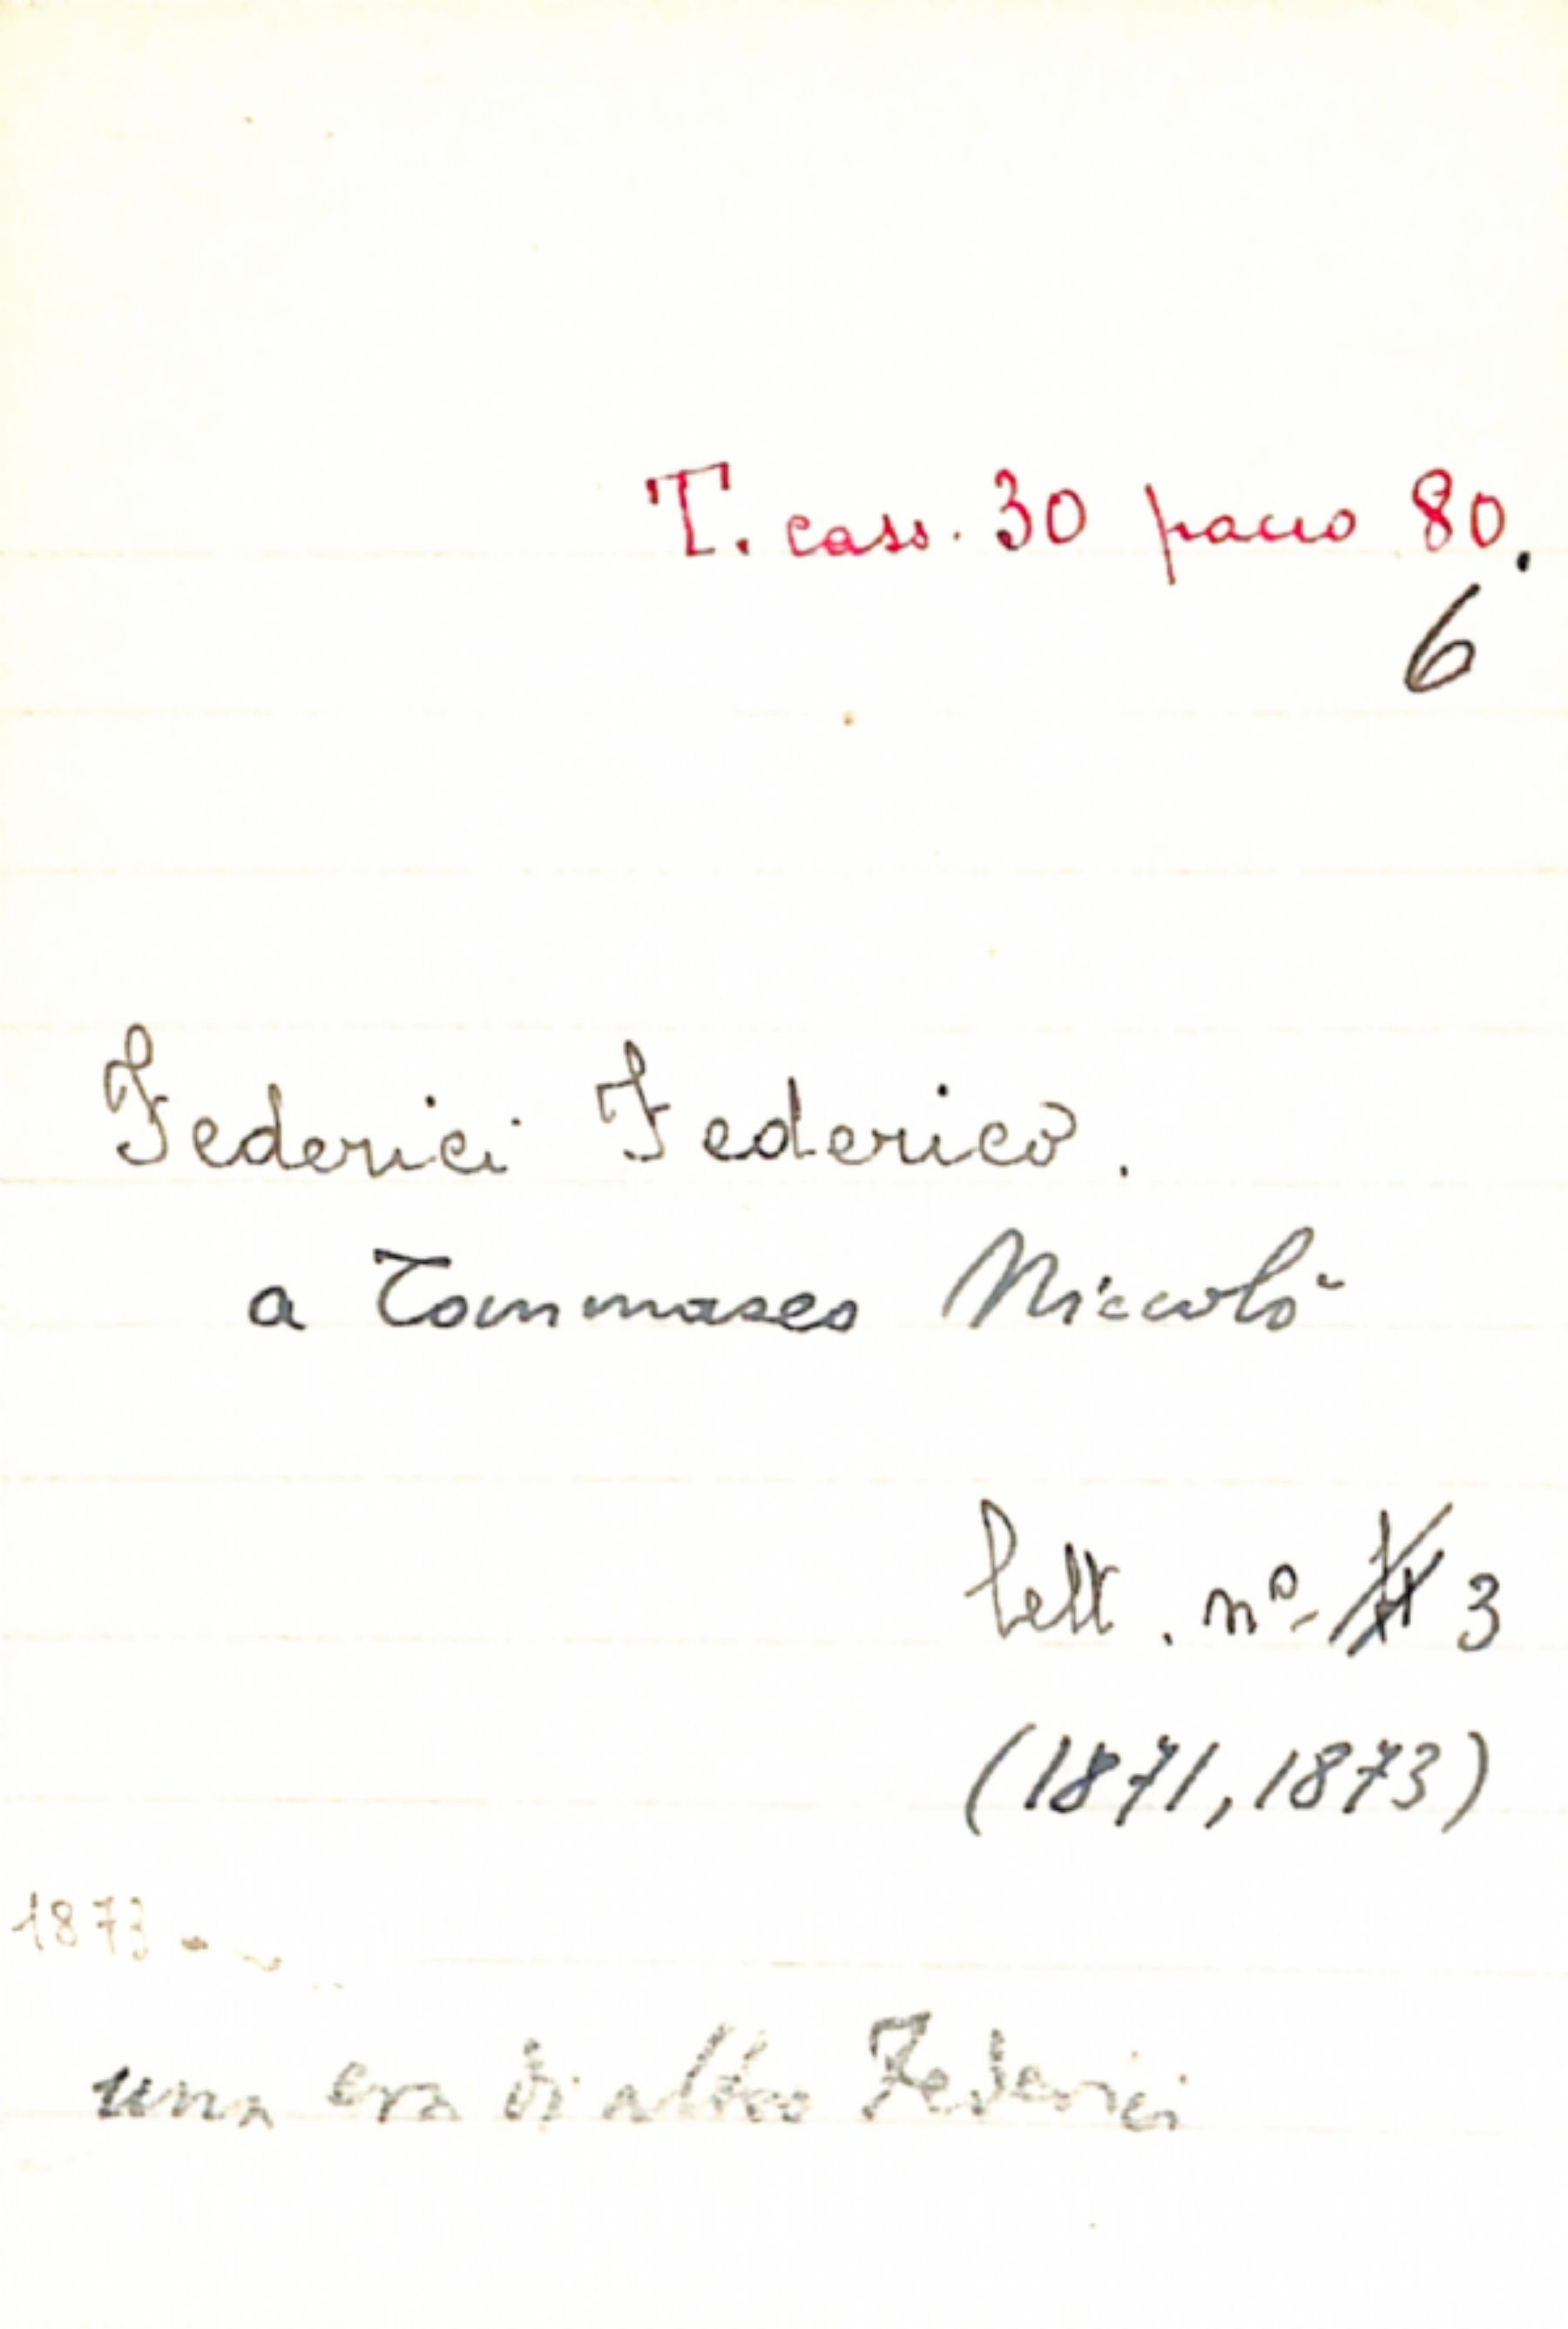 T. cass. 30 pacco 80.
6
Federici Federico.
a Tommaseo Niccolò
lett. nº 3
(1871, 1873)
1873
una era di altro Federici